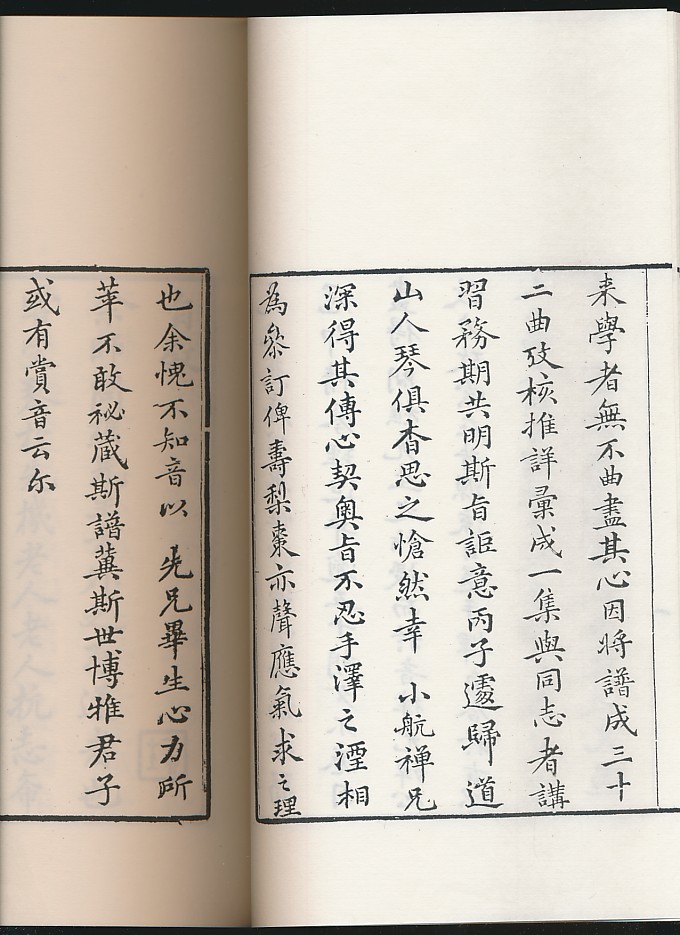 来學者無不曲盡其心因將譜成三十
二曲攷核推詳彙成一集與同志者講
習務期共明斯旨詎意丙子遽歸道
山人琴俱杳思之愴然幸 小航禅兄
深得其傳心契奧旨不忍手澤之湮相
為叅訂俾壽梨棗亦聲應氣求之理
也余愧不知音以 先兄畢生心力所
萃不敢秘蔵斯譜冀斯世博雅君子
或有賞音云尔